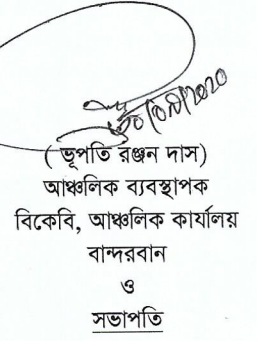 ( ভূপতি রঞ্জন দাস)
আঞ্চলিক ব্যবস্থাপক
বিকেবি, আঞ্চলিক কার্যালয়
বান্দরবান
ও
সভাপতি